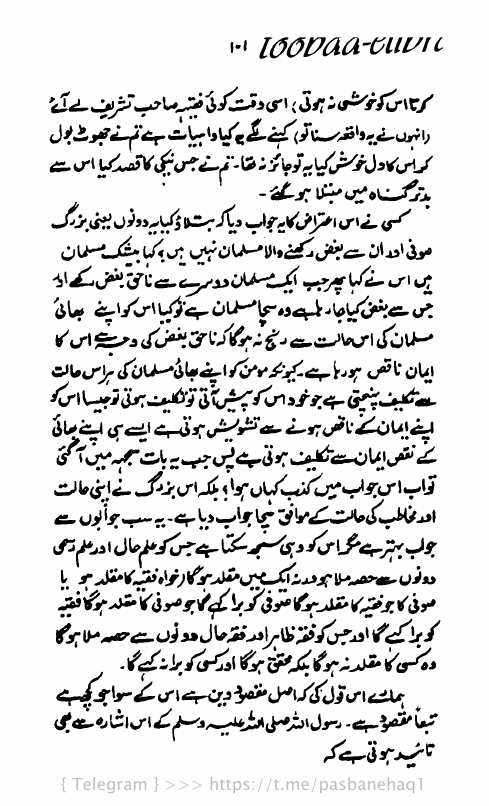 ۱۰۱ toobaa-elibr
کرتا اس کو خوشی نہ ہوتی، اسی وقت کوئی فقیہ صاحب تشریف لے آئے
(انہوں نے یہ واقعہ سنا تو) کہنے لگے یہ کیا واہیات ہے تم نے جھوٹ بول
کر اس کا دل خوش کیا یہ تو جائز نہ تھا۔ تم نے جس نیکی کا قصد کیا اس سے
بدتر گناہ میں مبتلا ہو گئے۔
کسی نے اس اعتراض کا یہ جواب دیا کہ بتلاؤ کیا یہ دونوں یعنی بزرگ
صوفی اور ان سے بغض رکھنے والا مسلمان نہیں ہیں؟ کہا بیشک مسلمان
ہیں اس نے کہا پھر جب ایک مسلمان دوسرے سے ناحق بغض رکھے اور
جس سے بغض کیا جا رہا ہے وہ سچا مسلمان ہے تو کیا اس کو اپنے بھائی
مسلمان کی اس حالت سے رنج نہ ہوگا کہ ناحق بغض کی وجہ سے اس کا
ایمان ناقص ہو رہا ہے۔ کیونکہ مومن کو اپنے بھائی مسلمان کی ہر اس حالت
سے تکلیف پہنچتی ہے جو خود اس کو پیش آتی تو تکلیف ہوتی تو جیسا اس کو
اپنے ایمان کے ناقص ہونے سے تشویش ہوتی ہے ایسے ہی اپنے بھائی
کے نقص ایمان سے تکلیف ہوتی ہے پس جب یہ بات سمجھ میں آگئی
تو اب اس جواب میں کذب کہاں ہوا؟ بلکہ اس بزرگ نے اپنی حالت
اور مخاطب کی حالت کے موافق سچا جواب دیا ہے۔ یہ سب جوابوں سے
جواب بہتر ہے مگر اس کو وہی سمجھ سکتا ہے جس کو علم حال اور علم رسمی
دونوں سے حصہ ملا ہو ورنہ ایک میں مقلد ہوگا (خواہ فقیہ کا مقلد ہو یا
صوفی کا جو فقیہ کا مقلد ہوگا صوفی کو برا کہے گا جو صوفی کا مقلد ہوگا فقیہ
کو برا کہے گا اور جس کو فقہ ظاہر اور فقہ حال دونوں سے حصہ ملا ہوگا
وہ کسی کا مقلد نہ ہوگا بلکہ محقق ہوگا اور کسی کو برا نہ کہے گا۔
ہمارے اس قول کی کہ اصل مقصود دین ہے اس کے سوا جو کچھ ہے
تبعاً مقصود ہے۔ رسول اللہ صلی اللہ علیہ وسلم کے اس اشارہ سے بھی
تائید ہوتی ہے کہ
{ Telegram } >>> https://t.me/pasbanehaq1